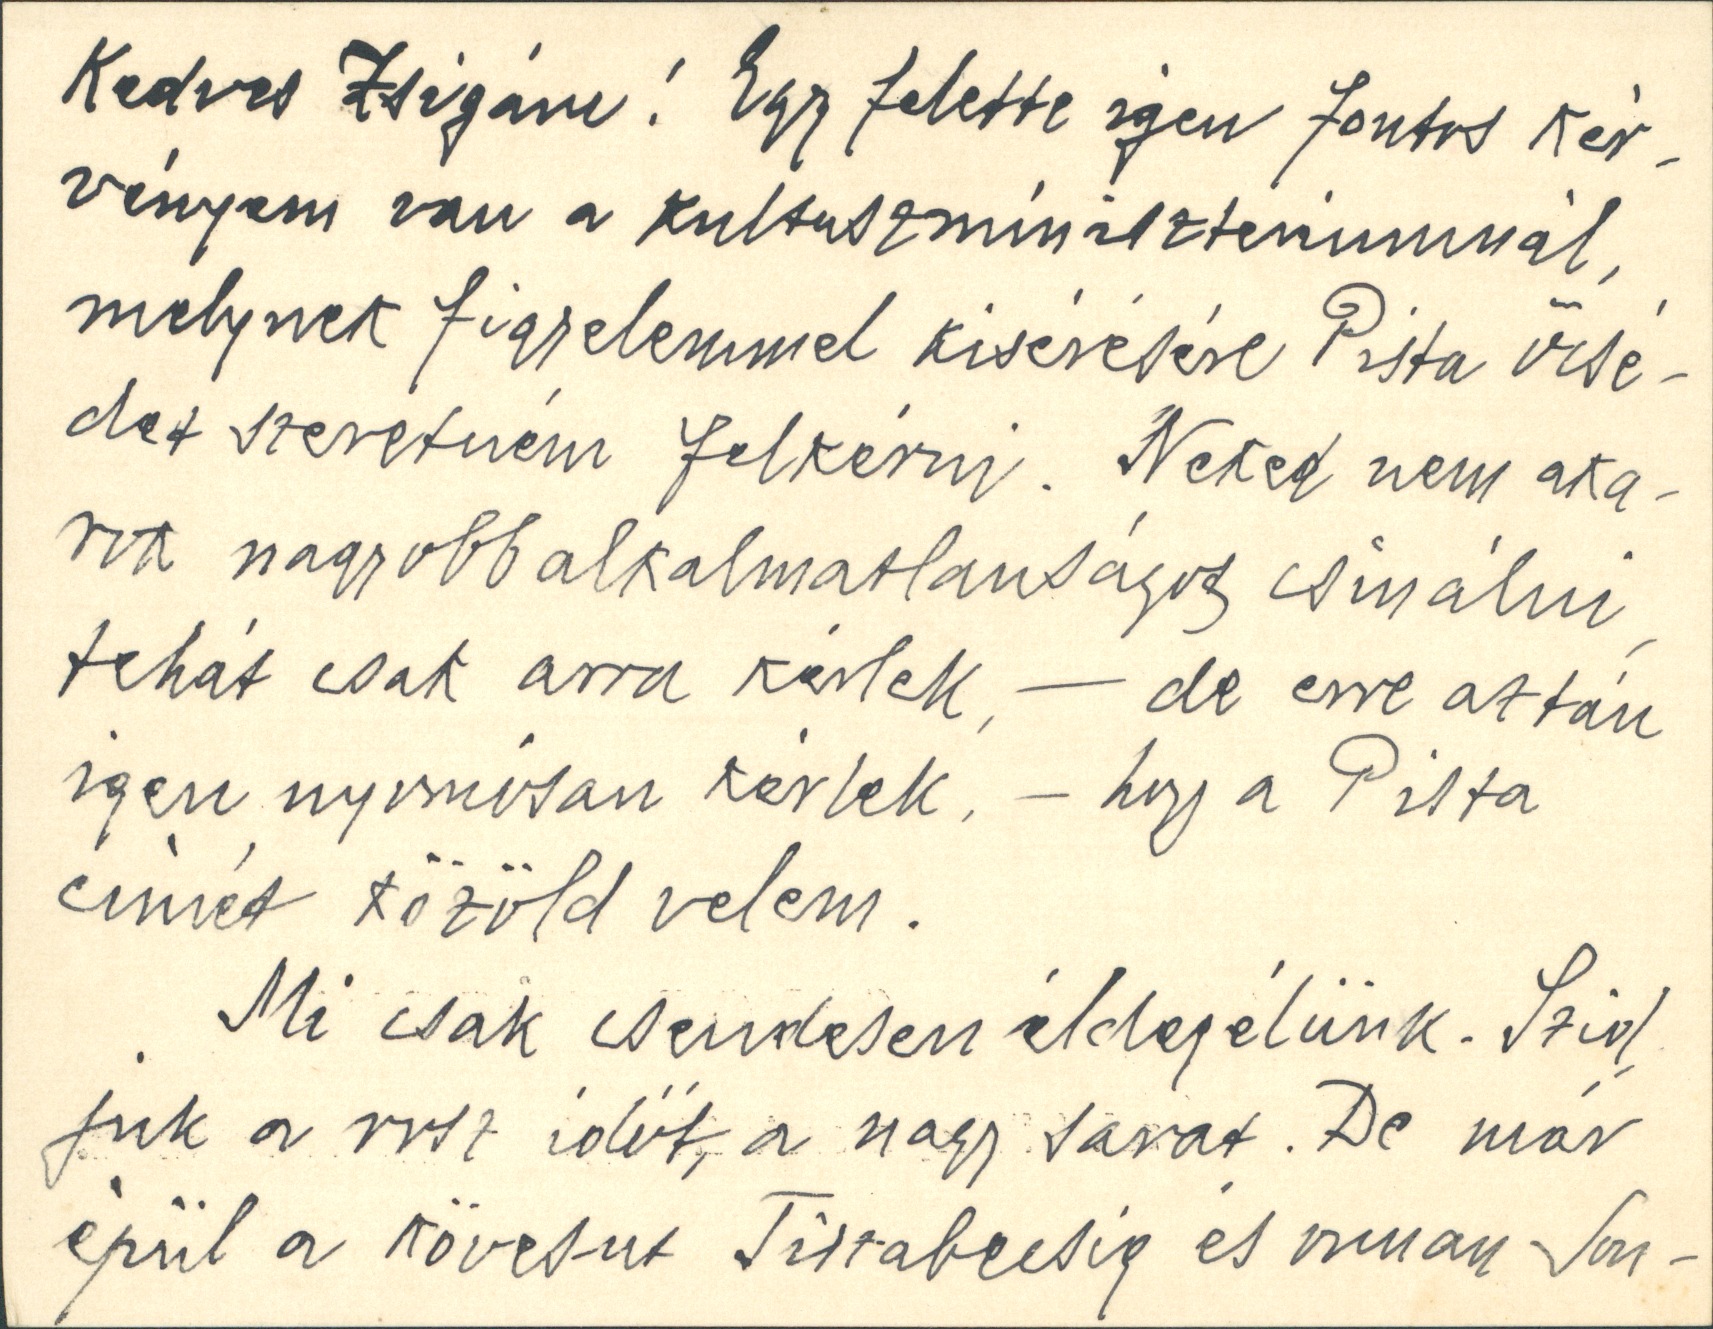 Kedves Zsigám! Egy felette igen fontos kér-
vényem van a kultuszminisztériumnál,
melynek figyelemmel kisérésére Pista öcsé-
det szeretném felkérni. Neked nem aka-
rok nagyobb alkalmatlanságot csinálni,
tehát csak arra kérlek, — de erre aztán
igen nyomósan kérlek, — hogy a Pista
cimét közöld velem.
Mi csak csendesen éldegélünk. Szid
juk a rosz időt, a nagy sarat. De már
épül a köves-ut Tiszabecsig és onnan Son-